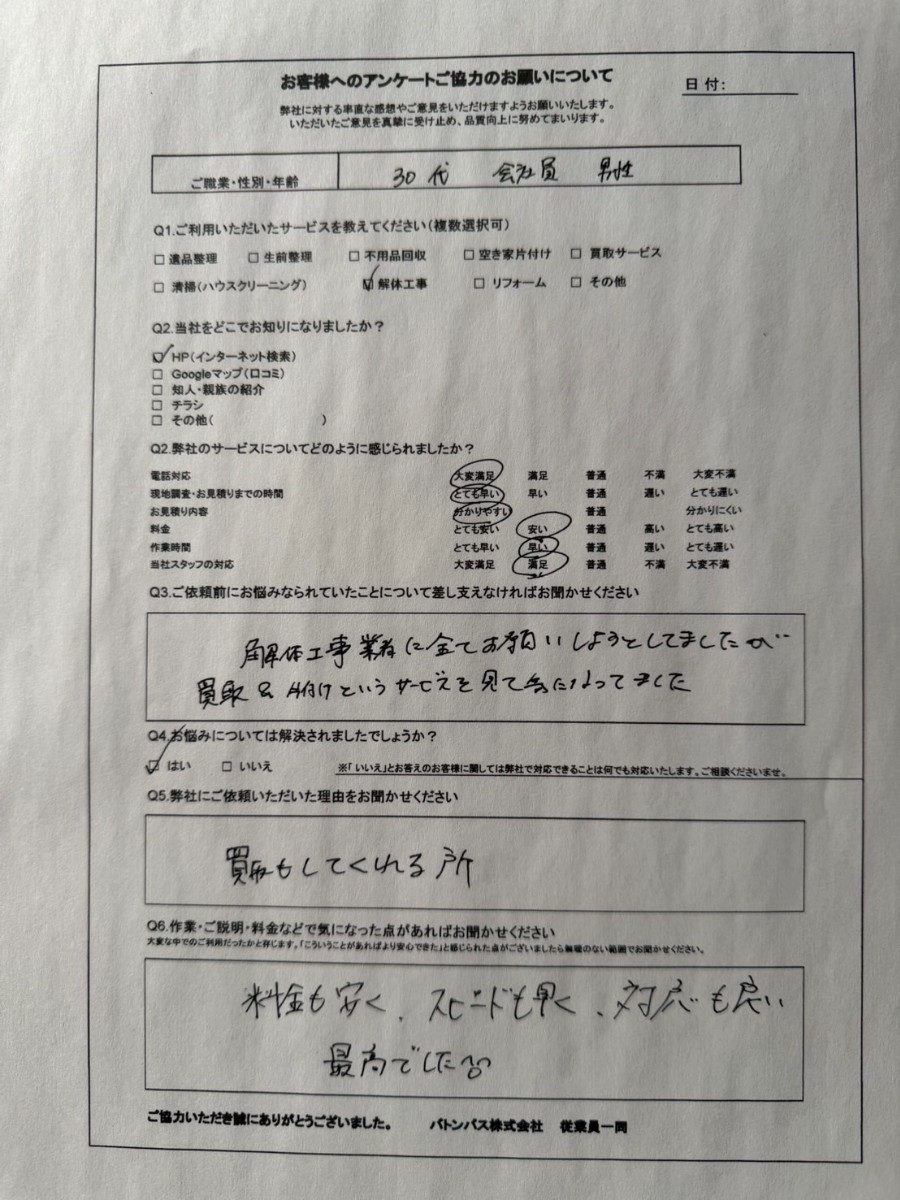 お客様へのアンケートご協力のお願いについて
日付:
弊社に対する率直な感想やご意見をいただけますようお願いいたします。
いただいたご意見を真摯に受け止め、品質向上に努めてまいります。
ご職業・性別・年齢 30代 会社員 男性
Q1.ご利用いただいたサービスを教えてください(複数選択可)
□ 遺品整理 □ 生前整理 □ 不用品回収 □ 空き家片付け □ 買取サービス
□ 清掃(ハウスクリーニング) ☑ 解体工事 □ リフォーム □ その他
Q2.当社をどこでお知りになりましたか?
☑ HP(インターネット検索)
□ Googleマップ(口コミ)
□ 知人・親族の紹介
□ チラシ
□ その他( )
Q2.弊社のサービスについてどのように感じられましたか?
電話対応 大変満足 満足 普通 不満 大変不満
現地調査・お見積りまでの時間 とても早い 早い 普通 遅い とても遅い
お見積り内容 分かりやすい 普通 分かりにくい
料金 とても安い 安い 普通 高い とても高い
作業時間 とても早い 早い 普通 遅い とても遅い
当社スタッフの対応 大変満足 満足 普通 不満 大変不満
Q3.ご依頼前にお悩みなられていたことについて差し支えなければお聞かせください
解体工事業者に全てお願いしようとしてましたが
買取&片付けというサービスを見て気になってました
Q4.お悩みについては解決されましたでしょうか?
☑ はい □ いいえ ※「いいえ」とお答えのお客様に関しては弊社で対応できることは何でも対応いたします。ご相談くださいませ。
Q5.弊社にご依頼いただいた理由をお聞かせください
買取もしてくれる所
Q6.作業・ご説明・料金などで気になった点があればお聞かせください
大変な中でのご利用だったかと存じます。「こういうことがあればより安心できた」と感じられた点がございましたら無理のない範囲でお聞かせください。
料金も安く、スピードも早く、対応も良い
最高でした
ご協力いただき誠にありがとうございました。 バトンパス株式会社 従業員一同